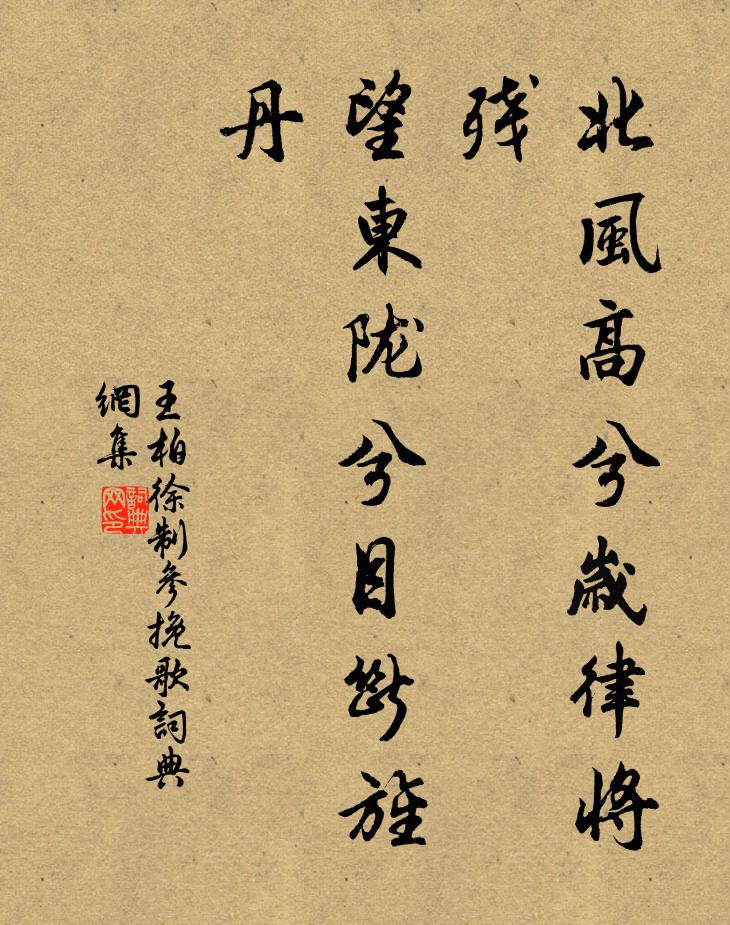 北風高兮歲律將
殘
望東陇兮目斷旌
丹
王柏徐制參挽歌詞典
網集
詞典網印